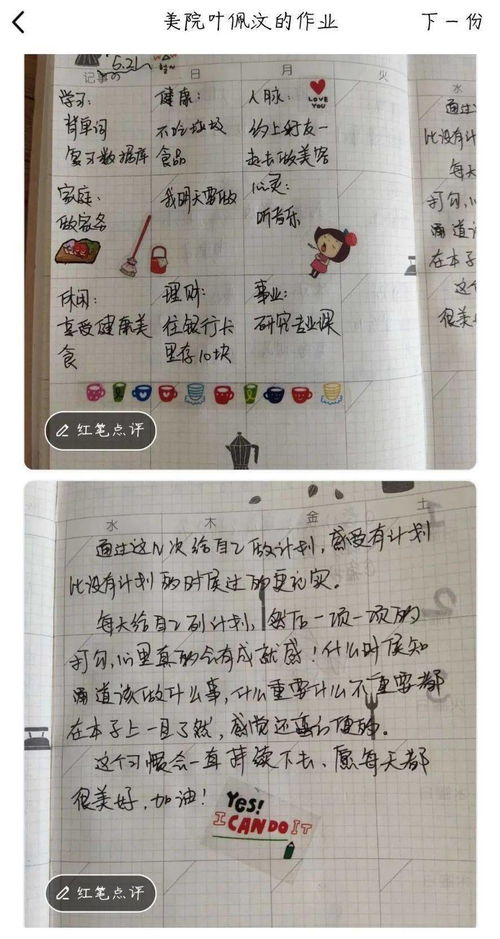 美院叶佩汶的作业
下一份
5.21
记事
日
月
火
水
学习:
背单词
复习数据库
健康:
不吃垃圾
食品
人脉:
LOVE
YOU
约上好友一
起去做美容
家庭:
做家务
我明天要做
心灵:
听音乐
休闲:
享受健康美
食
理财:
往银行卡
里存10块
事业:
研究专业课
通过
比没有计
每天
打勾,心
在本子
这个
很美
红笔点评
水
木
金
土
通过这N次给自己做计划,感受有计划
比没有计划的时候过的更充实。
每天给自己列计划,然后一项一项的
打勾,心里真的会有成就感!什么时候知
道该做什么事,什么重要什么不重要都
在本子上一目了然,感觉还蛮方便的。
这个习惯会一直持续下去,愿每天都
很美好,加油!
Yes!
I CAN DO IT
红笔点评